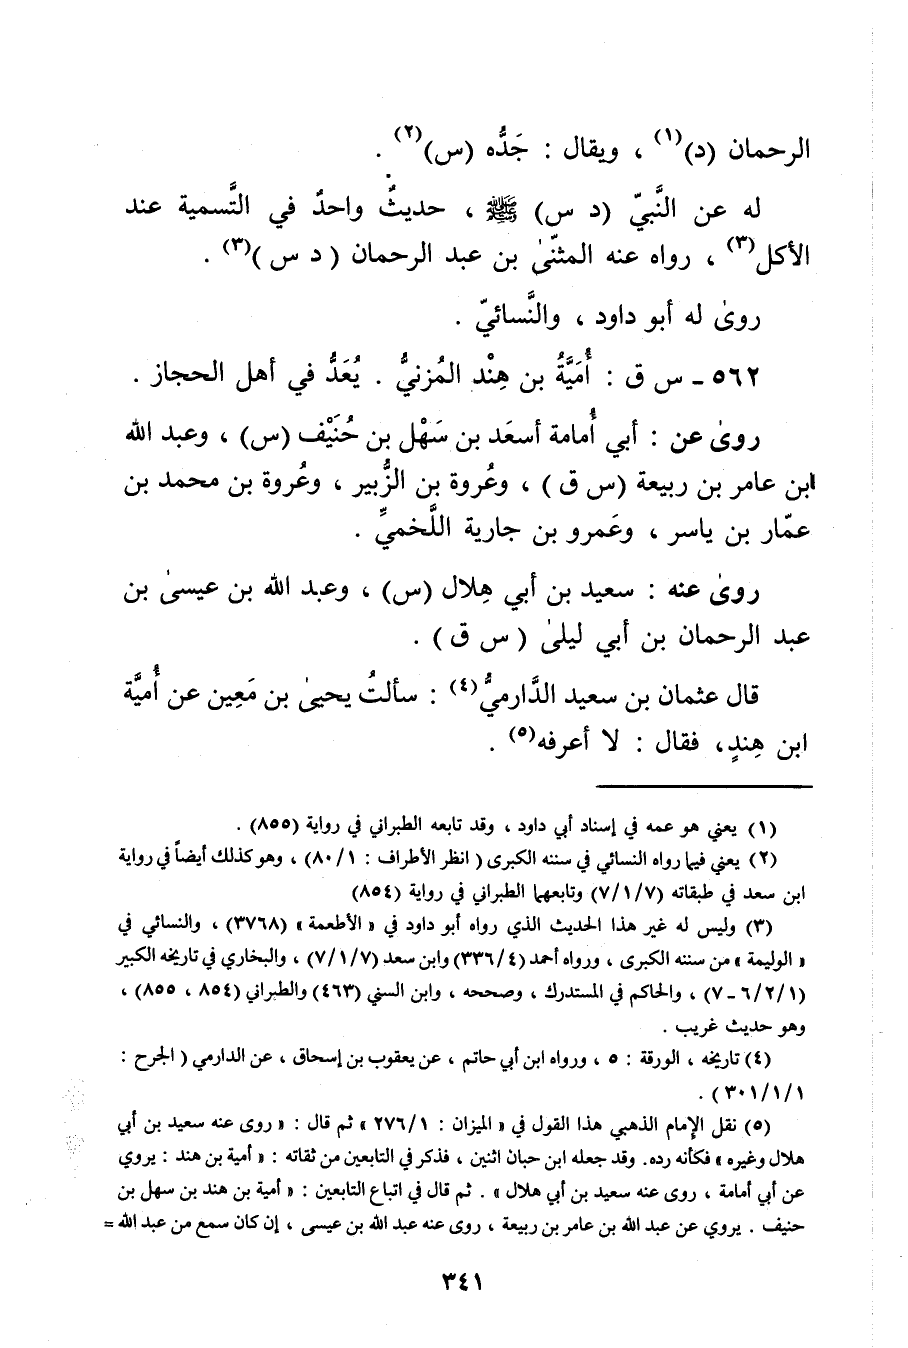 الرحمان (د)(١) ، ويقال : جَدُّه (س)(٢) .
له عن النَّبيّ (د س) ﷺ ، حديثٌ واحدٌ في التَّسمية عند
الأكل(٣) ، رواه عنه المثنّىٰ بن عبد الرحمان ( د س )(٣) .
روىٰ له أبو داود ، والنَّسائيّ .
٥٦٢ - س ق : أُمَيَّةُ بن هِنْد المُزنيُّ . يُعَدُّ في أهل الحجاز .
روىٰ عن : أبي أُمامة أسعَد بن سَهْل بن حُنَيْف (س) ، وعبد الله
ابن عامر بن ربيعة (س ق ) ، وعُروة بن الزُّبير ، وعُروة بن محمد بن
عمّار بن ياسر ، وعَمرو بن جارية اللَّخميِّ .
روىٰ عنه : سعيد بن أبي هِلال (س) ، وعبد الله بن عيسىٰ بن
عبد الرحمان بن أبي ليلىٰ ( س ق ) .
قال عثمان بن سعيد الدَّارميُّ(٤) : سألتُ يحيىٰ بن مَعِين عن أُميَّة
ابن هِندٍ، فقال : لا أعرفه(٥) .
(١) يعني هو عمه في إسناد أبي داود ، وقد تابعه الطبراني في رواية (٨٥٥) .
(٢) يعني فيما رواه النسائي في سننه الكبرى ( انظر الأطراف : ٨٠/١) ، وهو كذلك أيضاً في رواية
ابن سعد في طبقاته (٧/١/٧) وتابعهما الطبراني في رواية (٨٥٤)
(٣) وليس له غير هذا الحديث الذي رواه أبو داود في « الأطعمة » (٣٧٦٨) ، والنسائي في
« الوليمة » من سننه الكبرى ، ورواه أحمد (٣٣٦/٤) وابن سعد (٧/١/٧) ، والبخاري في تاريخه الكبير
(٦/٢/١ - ٧) ، والحاكم في المستدرك ، وصححه ، وابن السني (٤٦٣) والطبراني (٨٥٤ ، ٨٥٥) ،
وهو حديث غريب .
(٤) تاريخه ، الورقة : ٥ ، ورواه ابن أبي حاتم ، عن يعقوب بن إسحاق ، عن الدارمي ( الجرح :
٣٠١/١/١ ) .
(٥) نقل الإمام الذهبي هذا القول في « الميزان : ٢٧٦/١ » ثم قال : « روى عنه سعيد بن أبي
هلال وغيره » فكأنه رده. وقد جعله ابن حبان اثنين ، فذكر في التابعين من ثقاته : « أمية بن هند : يروي
عن أبي أمامة ، روى عنه سعيد بن أبي هلال » . ثم قال في اتباع التابعين : « أمية بن هند بن سهل بن
حنيف . يروي عن عبد الله بن عامر بن ربيعة ، روى عنه عبد الله بن عيسى ، إن كان سمع من عبد الله =
٣٤١